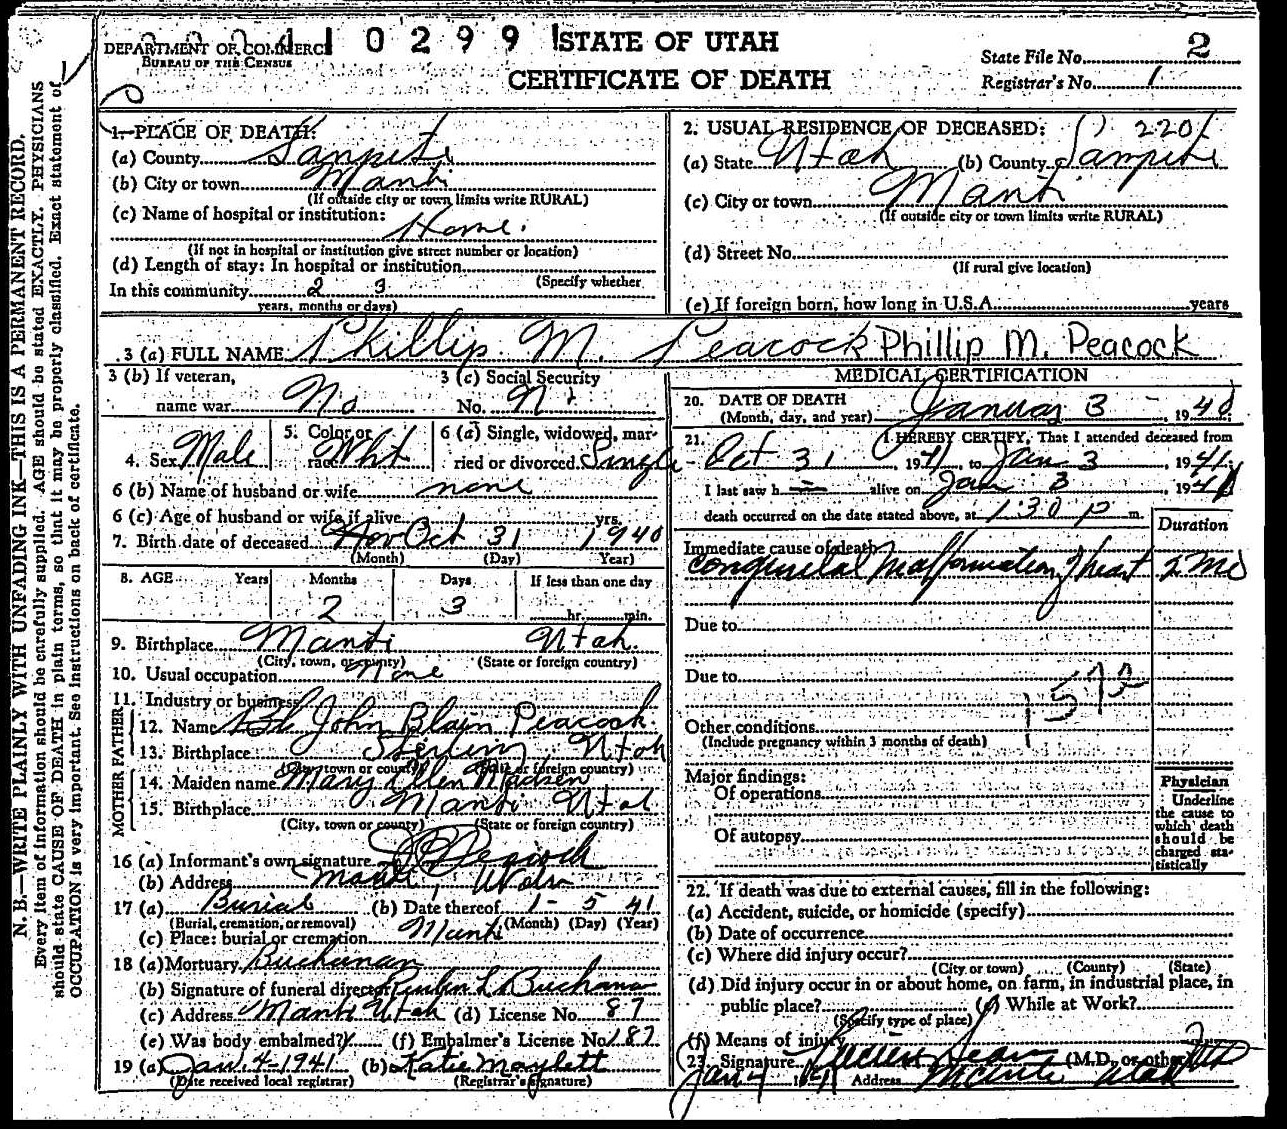 DEPARTMENT OF COMMERCE
BUREAU OF THE CENSUS
10299
STATE OF UTAH
CERTIFICATE OF DEATH
State File No. 2
Registrar's No. 1
N. B.—WRITE PLAINLY WITH UNFADING INK—THIS IS A PERMANENT RECORD.
Every item of information should be carefully supplied. AGE should be stated EXACTLY. PHYSICIANS
should state CAUSE OF DEATH in plain terms, so that it may be properly classified. Exact statement of
OCCUPATION is very important. See instructions on back of certificate.
1. PLACE OF DEATH:
(a) County Sanpete
(b) City or town Manti
(If outside city or town limits write RURAL)
(c) Name of hospital or institution:
Home.
(If not in hospital or institution give street number or location)
(d) Length of stay: In hospital or institution
(Specify whether
In this community 2 3
years, months or days)
2. USUAL RESIDENCE OF DECEASED: 2201
(a) State Utah (b) County Sanpete
(c) City or town Manti
(If outside city or town limits write RURAL)
(d) Street No.
(If rural give location)
(e) If foreign born, how long in U.S.A. years
3 (a) FULL NAME Phillip M. Peacock Phillip M. Peacock
3 (b) If veteran,
name war No
3 (c) Social Security
No. N
4. Sex Male
5. Color or
race Wht
6 (a) Single, widowed, mar-
ried or divorced Single
6 (b) Name of husband or wife none
6 (c) Age of husband or wife if alive yrs.
7. Birth date of deceased Nov Oct 31 1940
(Month) (Day) Year)
8. AGE Years Months Days If less than one day
2 3 hr. min.
9. Birthplace Manti Utah.
(City, town, or county) (State or foreign country)
10. Usual occupation None
11. Industry or business
FATHER
12. Name John Blain Peacock
13. Birthplace Sterling Utah
(City, town or county) (State or foreign country)
MOTHER
14. Maiden name Mary Ellen Madsen
15. Birthplace Manti Utah
(City, town or county) (State or foreign country)
16 (a) Informant's own signature J B Peacock
(b) Address Manti, Utah
17 (a) Burial (b) Date thereof 1- 5 41
(Burial, cremation, or removal) (Month) (Day) (Year)
(c) Place: burial or cremation Manti
18 (a) Mortuary Buchanan
(b) Signature of funeral director Reuben L Buchanan
(c) Address Manti Utah (d) License No. 87
(e) Was body embalmed? (f) Embalmer's License No. 187
19 (a) Jan. 4-1941 (b) Katie Maylett
(Date received local registrar) (Registrar's signature)
MEDICAL CERTIFICATION
20. DATE OF DEATH
(Month, day, and year) January 3 - , 1940
21. I HEREBY CERTIFY, That I attended deceased from
Oct 31 , 1941, to Jan 3 , 1941.
I last saw h alive on Jan 3 , 1941
death occurred on the date stated above, at 1:30 p m.
Duration
Immediate cause of death
Congenital Malformation of heart 2 Mo
Due to
Due to
157e
Other conditions
(Include pregnancy within 3 months of death)
Major findings:
Of operations
Of autopsy
Physician
Underline
the cause to
which death
should be
charged sta-
tistically
22. If death was due to external causes, fill in the following:
(a) Accident, suicide, or homicide (specify)
(b) Date of occurrence
(c) Where did injury occur?
(City or town) (County) (State)
(d) Did injury occur in or about home, on farm, in industrial place, in
public place? (e) While at Work?
(Specify type of place)
(f) Means of injury
23. Signature Lucien Sears (M.D. or other)
Jan 4 1941 Address Manti Utah